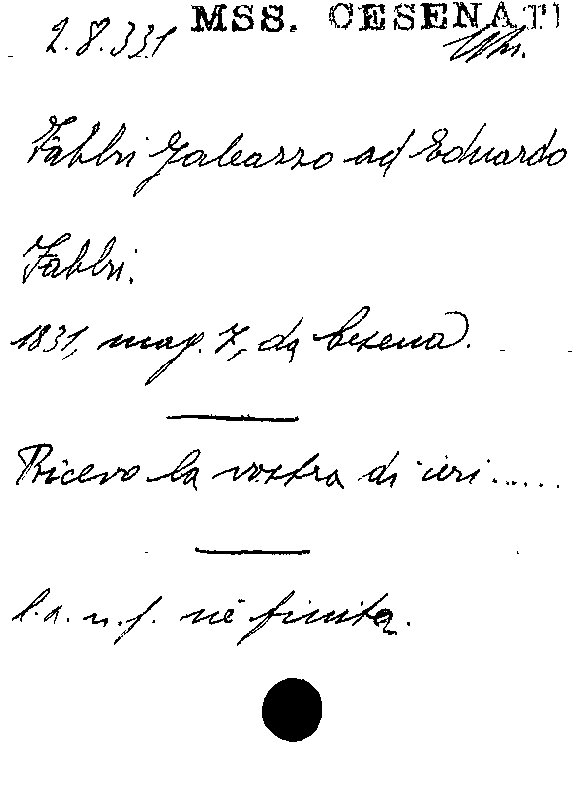 MSS. CESENATI
2.8.331
Fabbri Galeazzo ad Eduardo
Fabbri.
1831, mag. 7, da Cesena.
Ricevo la vostra di ieri.....
l.a. n.f. nè finita.